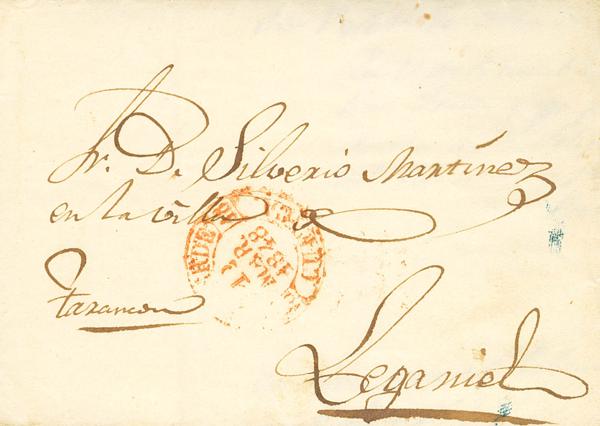 Sr. D. Silverio Martínez
en la villa de
Tarancon
Leganiel
MAR
1848